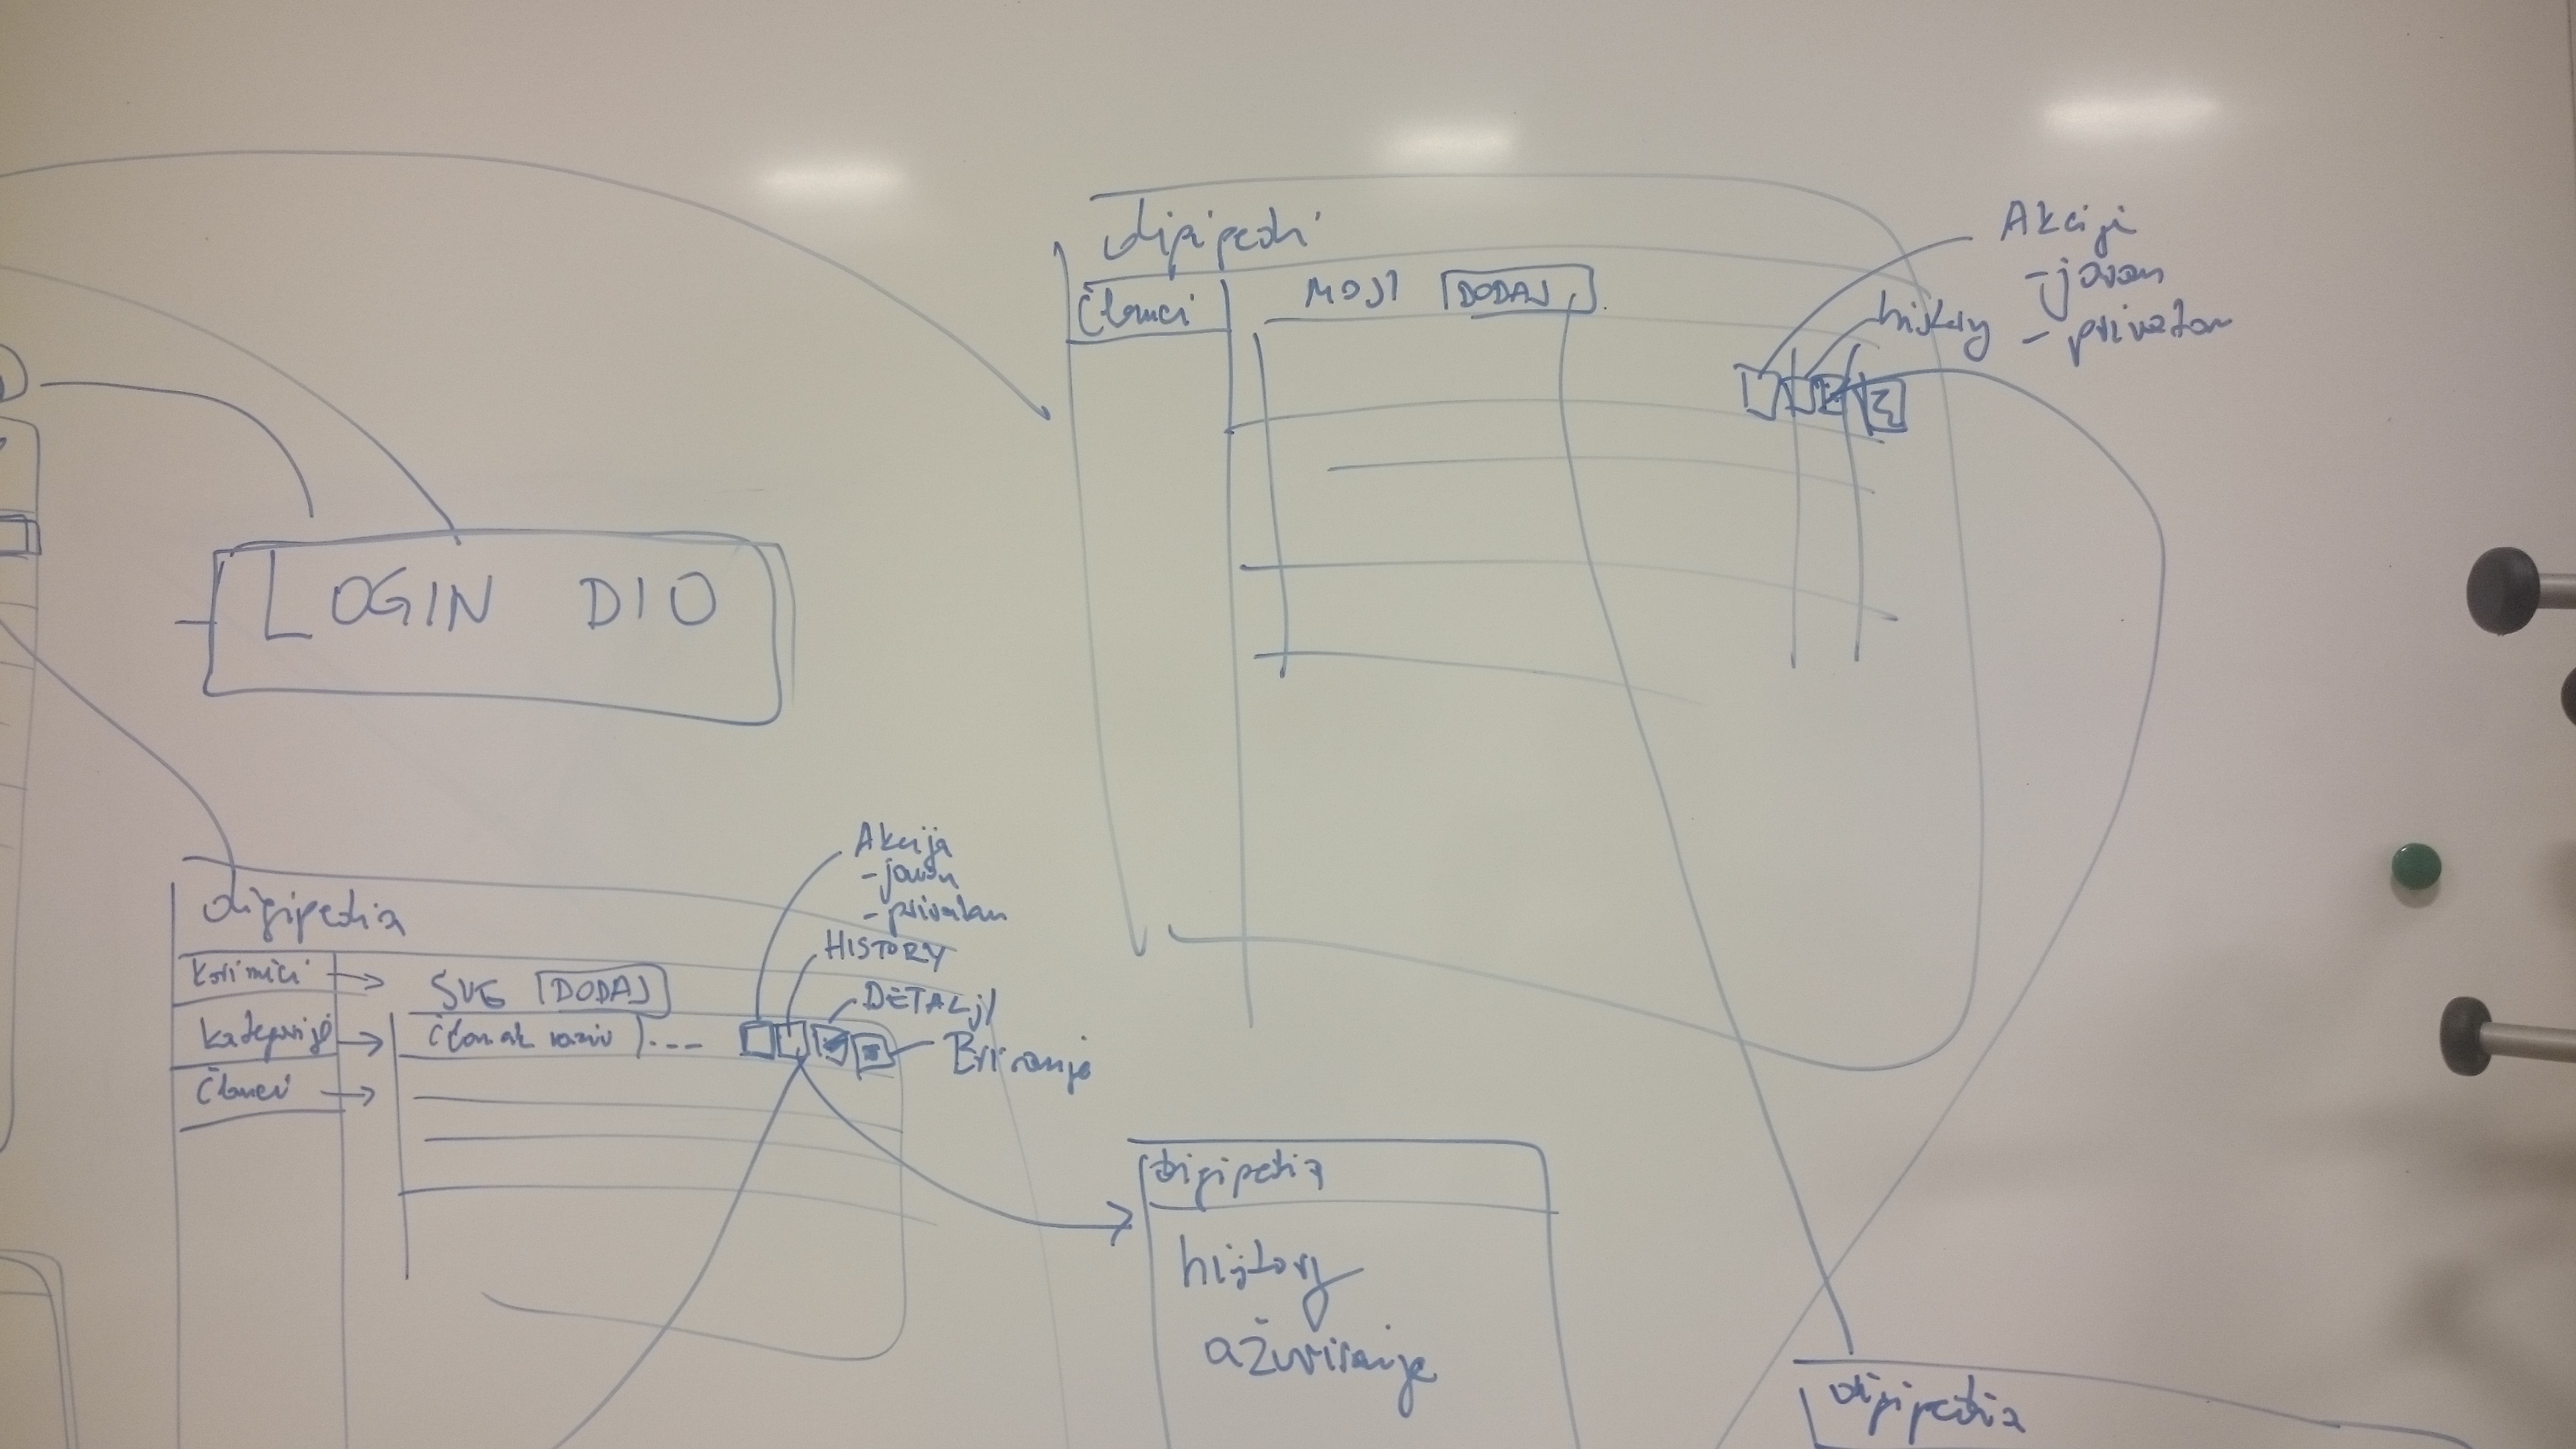 digipedi
Članci
MOJI DODAJ
Akcije
- javan
- privatan
history
LOGIN DIO
digipedia
Korisnici
kategorije
Članci
SVE DODAJ
Članak naziv
Akcija
- javan
- privatan
HISTORY
DETALJI
Brisanje
digipedia
history
ažuriranje
digipedia